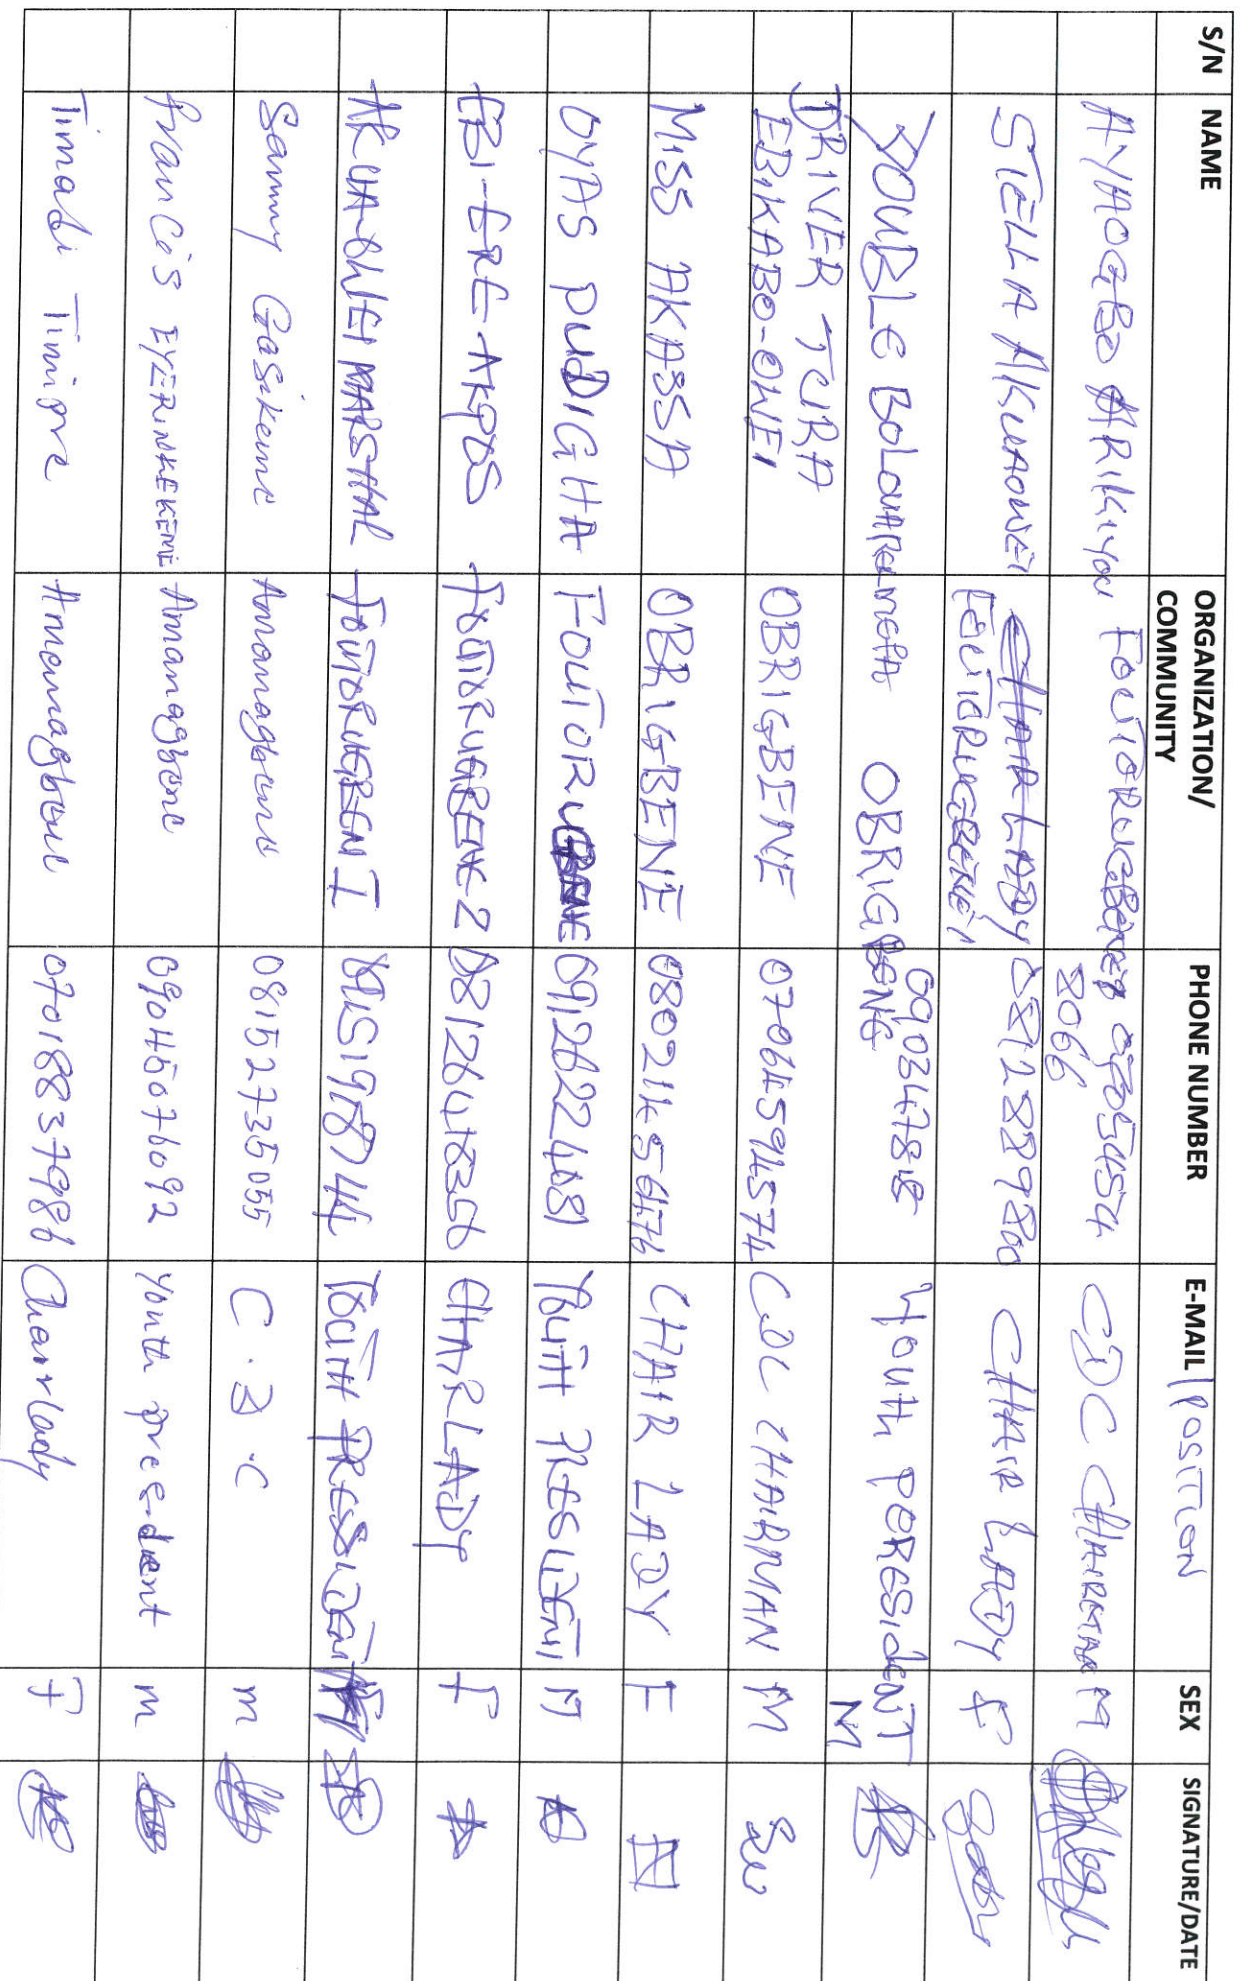 S/N NAME ORGANIZATION/ COMMUNITY PHONE NUMBER E-MAIL | POSITION SEX SIGNATURE/DATE
AYAOGBO ARIKIYOU FOUTORUGBENE CDC CHAIRMAN M
8066
STELLA AKUAOWEI CHAIR LADY 0812889800 CHAIR LADY F
FOUTORUGBENE 1
DOUBLE OBRIGBENE 090347818 Youth PORESIdENT M
DRIVER TURA
EBIKABO-OWEI OBRIGBENE 07064594574 CDC CHAIRMAN M
MISS AKASSA OBRIGBENE 08021456476 CHAIR LADY F
OYAS PUDDIGHA FOUTORUGBENE 0912622408 YOUTH PRESIDENT M
EBI-ERE-AKPOS FOUTORUGBENE 2 08126418356 CHAIRLADY F
AKUA-OWEI MARSHAL FOUTORUGBEN I YOUTH PRESSIDENT
Sammy Gasikeme Amamagbene 08152735055 C.D.C m
EYERINKEKEME Amanagbene 09045076092 Youth preesident m
Timadi Timipre Amamagbene 07018837986 Chairlady F